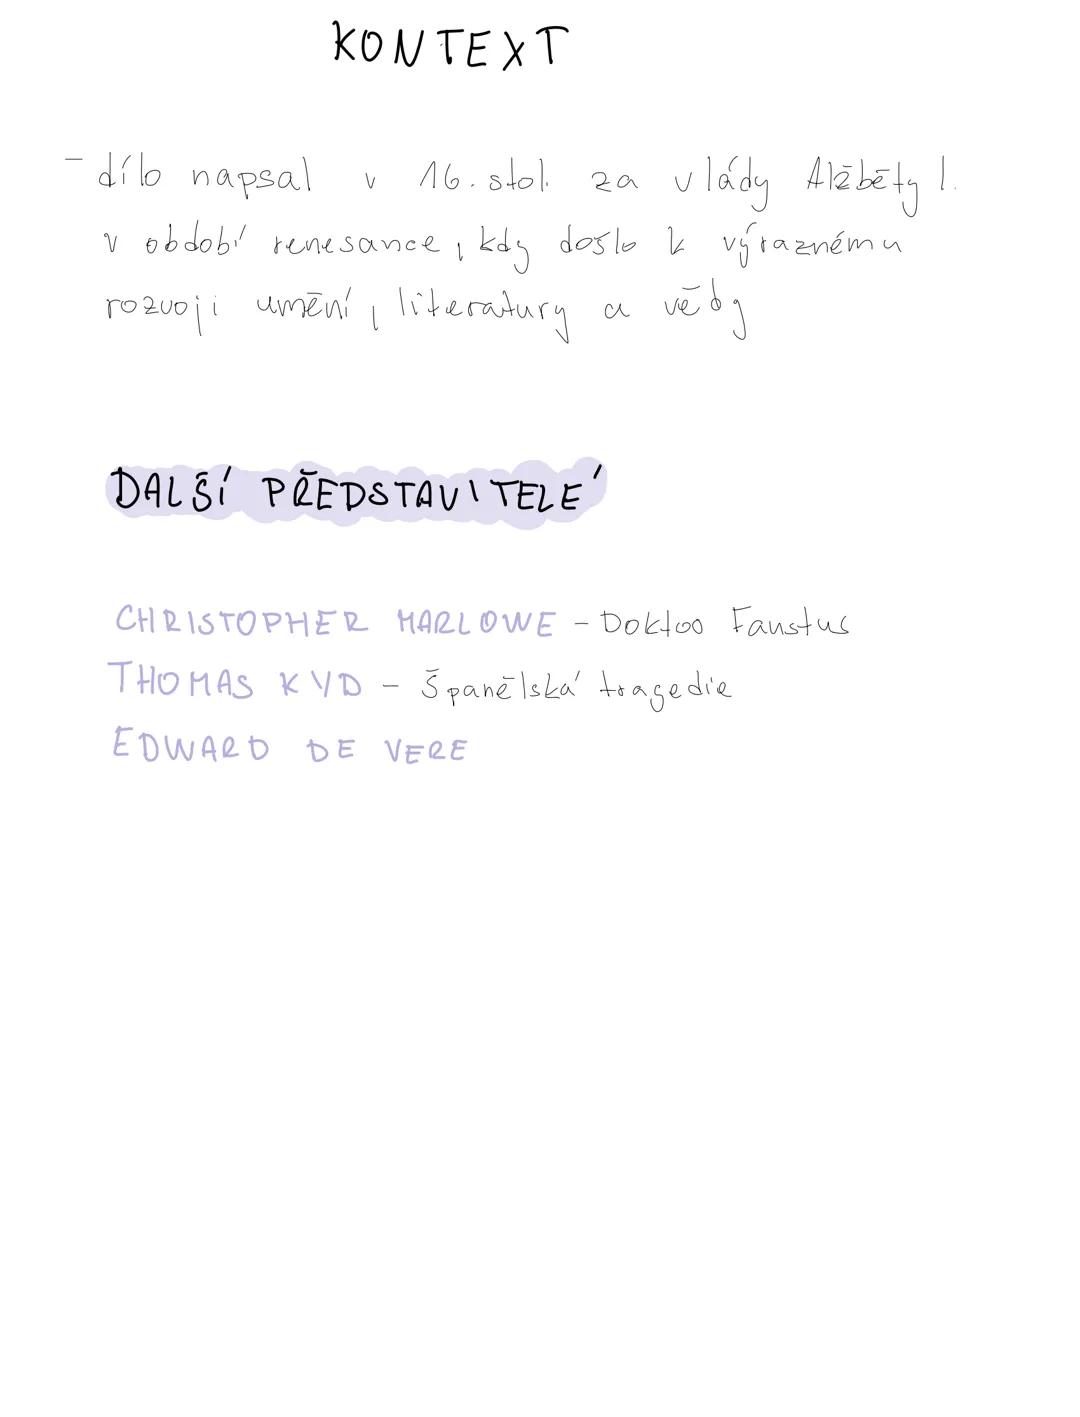 KONTEXT
- dílo napsal v 16. stol. za vlády Alžběty I.
v období renesance, kdy došlo k výraznému
rozvoji umění, literatury a vědy
DALŠÍ PŘEDSTAVITELÉ
CHRISTOPHER MARLOWE - Doktoo Faustus
THOMAS KYD - Španělská tragedie
EDWARD DE VERE